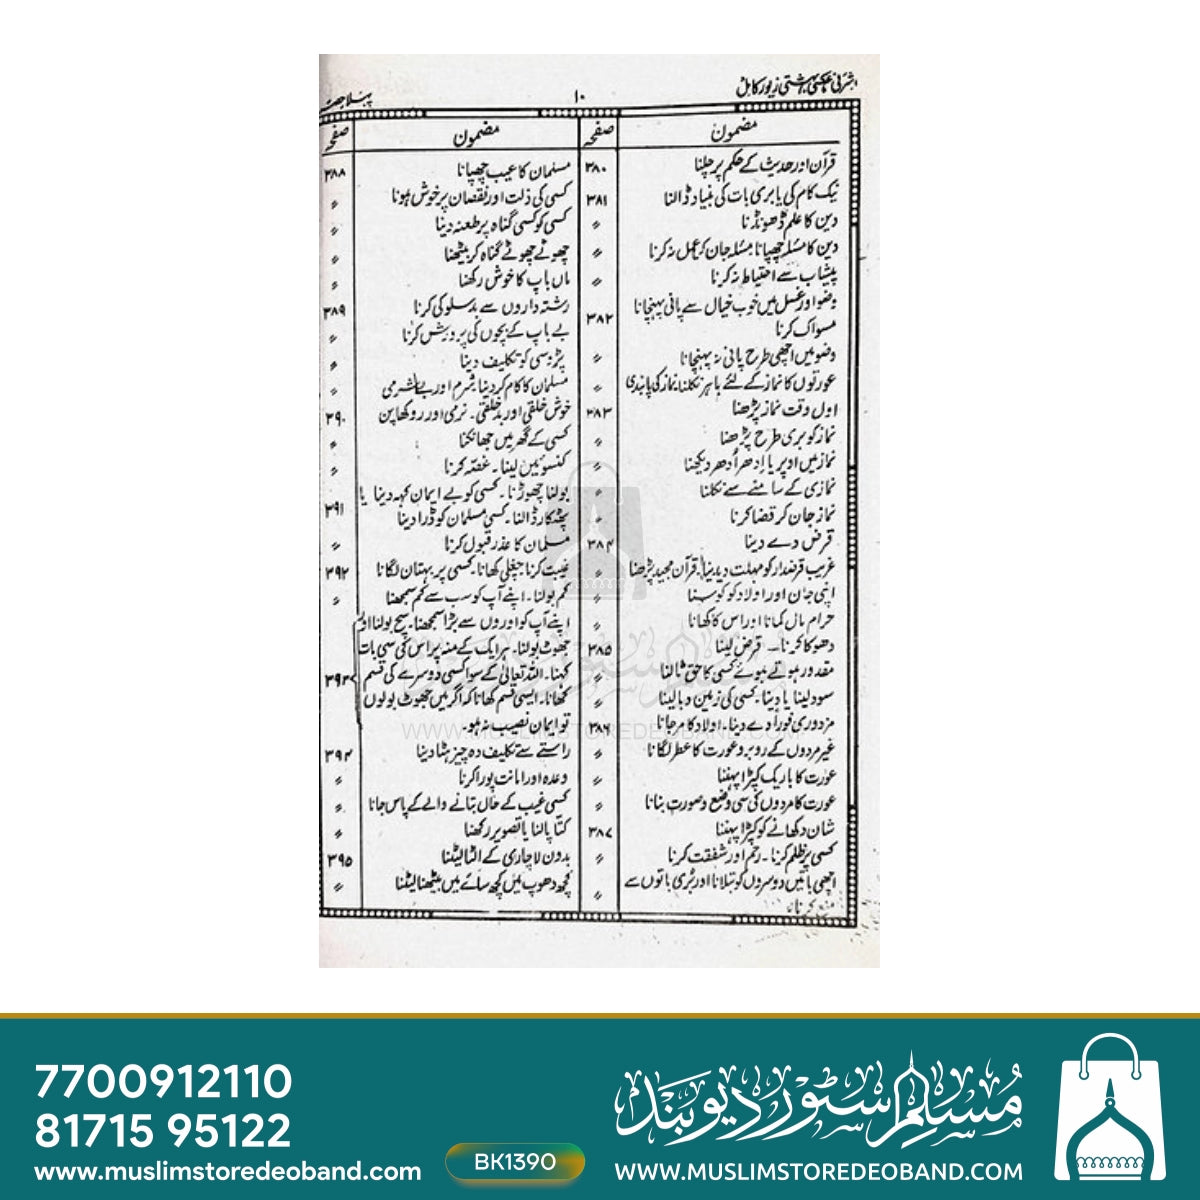 اشرفی عکسی بہشتی زیور کامل
۱۰
پہلا حصہ
مضمون
صفحہ
قرآن اور حدیث کے حکم پر چلنا ۳۸۰
نیک کام کی یا بری بات کی بنیاد ڈالنا ۳۸۱
دین کا علم ڈھونڈنا 〃
دین کا مسئلہ چھپانا، مسئلہ جان کر عمل نہ کرنا 〃
پیشاب سے احتیاط نہ کرنا 〃
وضو اور غسل میں خوب خیال سے پانی پہنچانا
مسواک کرنا ۳۸۲
وضو میں اچھی طرح پانی نہ پہنچانا 〃
عورتوں کا نماز کے لئے باہر نکلنا، نماز کی پابندی 〃
اول وقت نماز پڑھنا ۳۸۳
نماز کو بری طرح پڑھنا 〃
نماز میں اوپر یا اِدھر اُدھر دیکھنا 〃
نمازی کے سامنے سے نکلنا 〃
نماز جان کر قضا کرنا 〃
قرض دے دینا ۳۸۴
غریب قرضدار کو مہلت دیدینا، قرآن مجید پڑھنا 〃
اپنی جان اور اولاد کو کوسنا 〃
حرام مال کمانا اور اس کا کھانا 〃
دھوکا کرنا۔ قرض لینا ۳۸۵
مقدور ہوتے ہوئے کسی کا حق ٹالنا 〃
سود لینا یا دینا۔ کسی کی زمین دبا لینا 〃
مزدوری فوراً دے دینا۔ اولاد کا مرجانا ۳۸۶
غیر مردوں کے روبرو عورت کا عطر لگانا 〃
عورت کا باریک کپڑا پہننا 〃
عورت کا مردوں کی سی وضع و صورت بنانا 〃
شان دکھانے کو کپڑا پہننا ۳۸۷
کسی پر ظلم کرنا۔ رحم اور شفقت کرنا 〃
اچھی باتیں دوسروں کو بتلانا اور بُری باتوں سے
منع کرنا 〃
مضمون
صفحہ
مسلمان کا عیب چھپانا ۳۸۸
کسی کی ذلت اور نقصان پر خوش ہونا 〃
کسی کو کسی گناہ پر طعنہ دینا 〃
چھوٹے چھوٹے گناہ کر بیٹھنا 〃
ماں باپ کا خوش رکھنا 〃
رشتہ داروں سے بدسلوکی کرنا ۳۸۹
بے باپ کے بچوں کی پرورش کرنا 〃
پڑوسی کو تکلیف دینا 〃
مسلمان کا کام کر دینا، شرم اور بے شرمی 〃
خوش خلقی اور بدخلقی۔ نرمی اور روکھاپن ۳۹۰
کسی کے گھر میں جھانکنا 〃
کنسوئیں لینا۔ غصہ کرنا 〃
بولنا چھوڑنا۔ کسی کو بے ایمان کہہ دینا یا
پھٹکار ڈالنا۔ کسی مسلمان کو ڈرا دینا ۳۹۱
مسلمان کا عذر قبول کرنا 〃
غیبت کرنا، چغلی کھانا۔ کسی پر بہتان لگانا ۳۹۲
کم بولنا۔ اپنے آپ کو سب سے کم سمجھنا 〃
اپنے آپ کو اوروں سے بڑا سمجھنا۔ سچ بولنا اور
جھوٹ بولنا۔ ہر ایک کے منہ پر اس کی سی بات
کہنا۔ اللہ تعالیٰ کے سوا کسی دوسرے کی قسم ۳۹۳
کھانا۔ ایسی قسم کھانا کہ اگر میں جھوٹ بولوں
تو ایمان نصیب نہ ہو۔
راستے سے تکلیف دہ چیز ہٹا دینا ۳۹۴
وعدہ اور امانت پورا کرنا 〃
کسی غیب کے حال بتانے والے کے پاس جانا 〃
کتا پالنا یا تصویر رکھنا 〃
بدون لاچاری کے الٹا لیٹنا ۳۹۵
کچھ دھوپ میں کچھ سائے میں بیٹھنا لیٹنا 〃
WWW.MUSLIMSTOREDEOBAND.COM
7700912110
81715 95122
www.muslimstoredeoband.com
BK1390
مسلم سٹور دیوبند
WWW.MUSLIMSTOREDEOBAND.COM